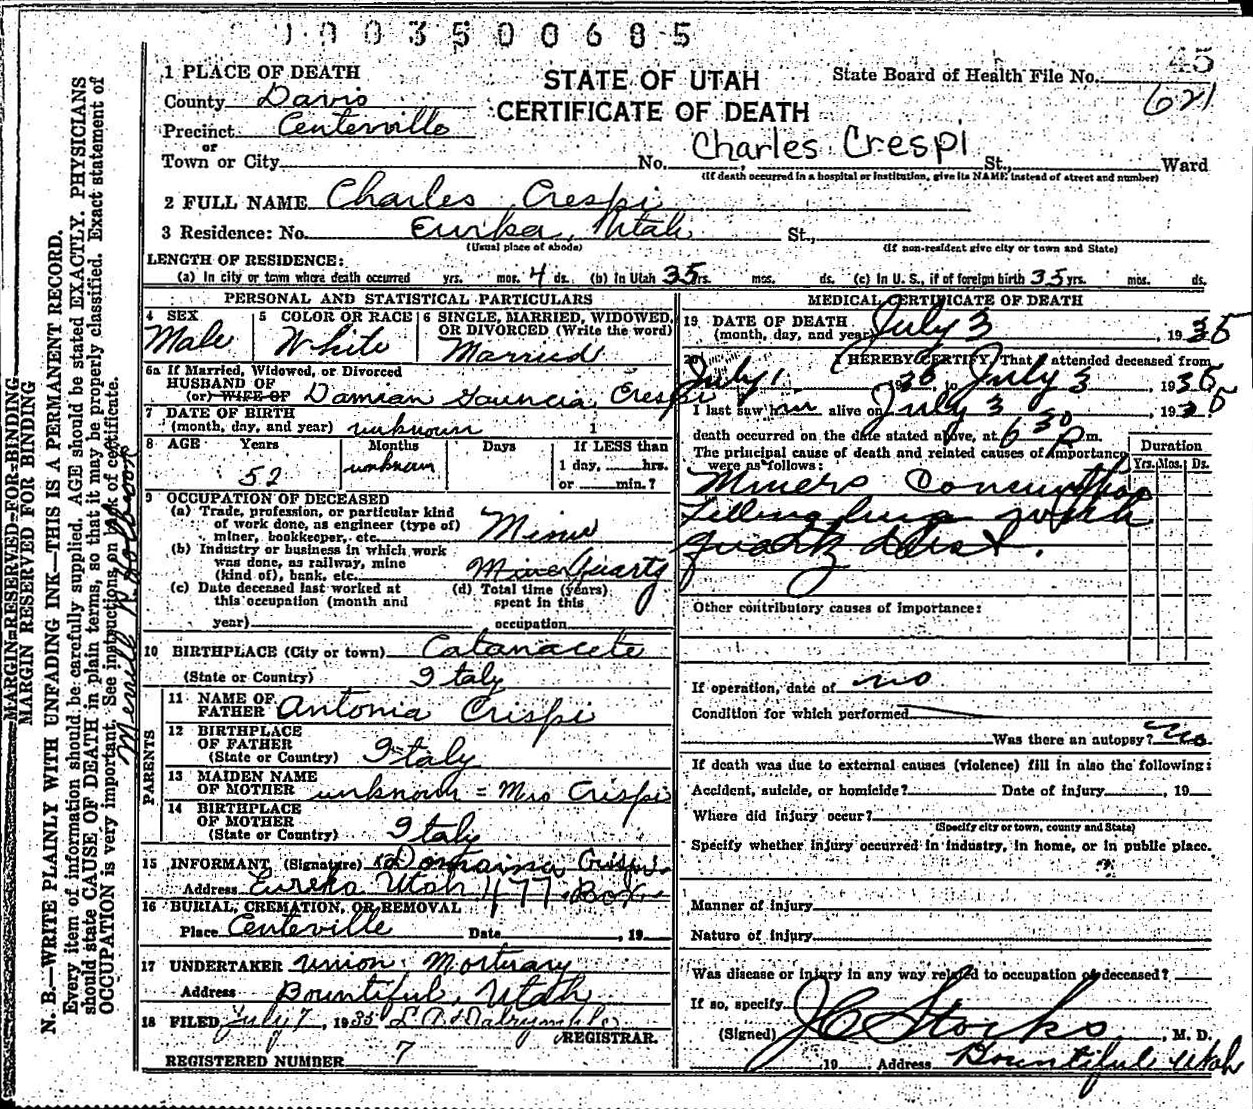 1 0 0 3 5 0 0 6 8 5
45
1 PLACE OF DEATH
STATE OF UTAH
State Board of Health File No.
County Davis
621
CERTIFICATE OF DEATH
Precinct Centerville
or
Charles Crespi
Town or City No. St., Ward
(If death occurred in a hospital or institution, give its NAME instead of street and number)
2 FULL NAME Charles Crespi
3 Residence: No. Eurika, Utah St.,
(Usual place of abode) (If non-resident give city or town and State)
LENGTH OF RESIDENCE:
(a) In city or town where death occurred yrs. mos. 4 ds. (b) In Utah 35 yrs. mos. ds. (c) In U. S., if of foreign birth 35 yrs. mos. ds.
PERSONAL AND STATISTICAL PARTICULARS
4 SEX
Male
5 COLOR OR RACE
White
6 SINGLE, MARRIED, WIDOWED, OR DIVORCED (Write the word)
Married
6a If Married, Widowed, or Divorced
HUSBAND OF
(or) WIFE OF Damian Crespi
7 DATE OF BIRTH
(month, day, and year) unknown 1
8 AGE Years Months Days If LESS than
1 day, hrs.
or min.?
52 unknown
9 OCCUPATION OF DECEASED
(a) Trade, profession, or particular kind
of work done, as engineer (type of)
miner, bookkeeper, etc. Miner
(b) Industry or business in which work
was done, as railway, mine
(kind of), bank, etc. Quartz
(c) Date deceased last worked at
this occupation (month and
year)
(d) Total time (years)
spent in this
occupation
10 BIRTHPLACE (City or town) Catanacete
(State or Country) Italy
PARENTS
11 NAME OF
FATHER Antonia Crispi
12 BIRTHPLACE
OF FATHER
(State or Country) Italy
13 MAIDEN NAME
OF MOTHER unknown = Mrs Crispi
14 BIRTHPLACE
OF MOTHER
(State or Country) Italy
15 INFORMANT (Signature) Crispi
Address Eureka Utah 477 Box
16 BURIAL, CREMATION, OR REMOVAL
Place Centeville Date , 19
17 UNDERTAKER Union Mortuary
Address Bountiful, Utah
18 FILED July 7, 1935 Dalrymple
REGISTRAR.
REGISTERED NUMBER 7
MEDICAL CERTIFICATE OF DEATH
19 DATE OF DEATH
(month, day, and year) July 3, 1935
20 I HEREBY CERTIFY, That I attended deceased from
July 1 35 to July 3 1935
I last saw him alive on July 3, 1935
death occurred on the date stated above, at 6 30 P m.
The principal cause of death and related causes of importance
were as follows:
Duration
Yrs. Mos. Ds.
Miners Consumption
filling lungs with
quartz dust.
Other contributory causes of importance:
If operation, date of no
Condition for which performed
Was there an autopsy? no
If death was due to external causes (violence) fill in also the following:
Accident, suicide, or homicide? Date of injury , 19
Where did injury occur?
(Specify city or town, county and State)
Specify whether injury occurred in industry, in home, or in public place.
Manner of injury
Nature of injury
Was disease or injury in any way related to occupation of deceased?
If so, specify
(Signed) J C Stocks, M. D.
, 19 Address Bountiful Utah
MARGIN RESERVED FOR BINDING
MARGIN RESERVED FOR BINDING
N. B.—WRITE PLAINLY WITH UNFADING INK—THIS IS A PERMANENT RECORD.
Every item of information should be carefully supplied. AGE should be stated EXACTLY. PHYSICIANS
should state CAUSE OF DEATH in plain terms, so that it may be properly classified. Exact statement of
OCCUPATION is very important. See instructions on back of certificate.
Merrill R. Holbrook